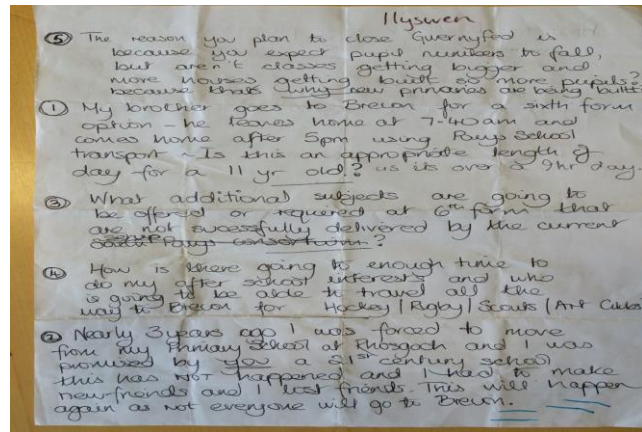 Llyswen
⑤ The reason you plan to close Gwernyfed is
because you expect pupil numbers to fall,
but aren't classes getting bigger and
more houses getting built so more pupils?
because thats why new primaries are being built!
① My brother goes to Brecon for a sixth form
option - he leaves home at 7-40am and
comes home after 5pm using Powys School
transport - Is this an appropriate length of
day for a 11 yr old? as its over a 9hr day.
③ What additional subjects are going to
be offered or required at 6th form that
are not sucessfully delivered by the current
south Powys consortium?
④ How is there going to enough time to
do my after school interests and who
is going to be able to travel all the
way to Brecon for Hockey | Rugby | Scouts | Art Clubs
② Nearly 3 years ago I was forced to move
from my Primary School at Rhosgoch and I was
promised by you a 21st century school
this has NOT happened and I had to make
new friends and I lost friends. This will happen
again as not everyone will go to Brecon.